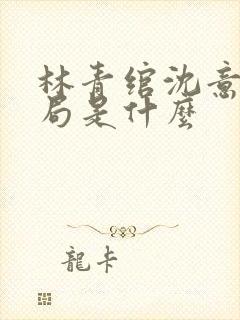 林青绾沈意
局是什麼
龍卡